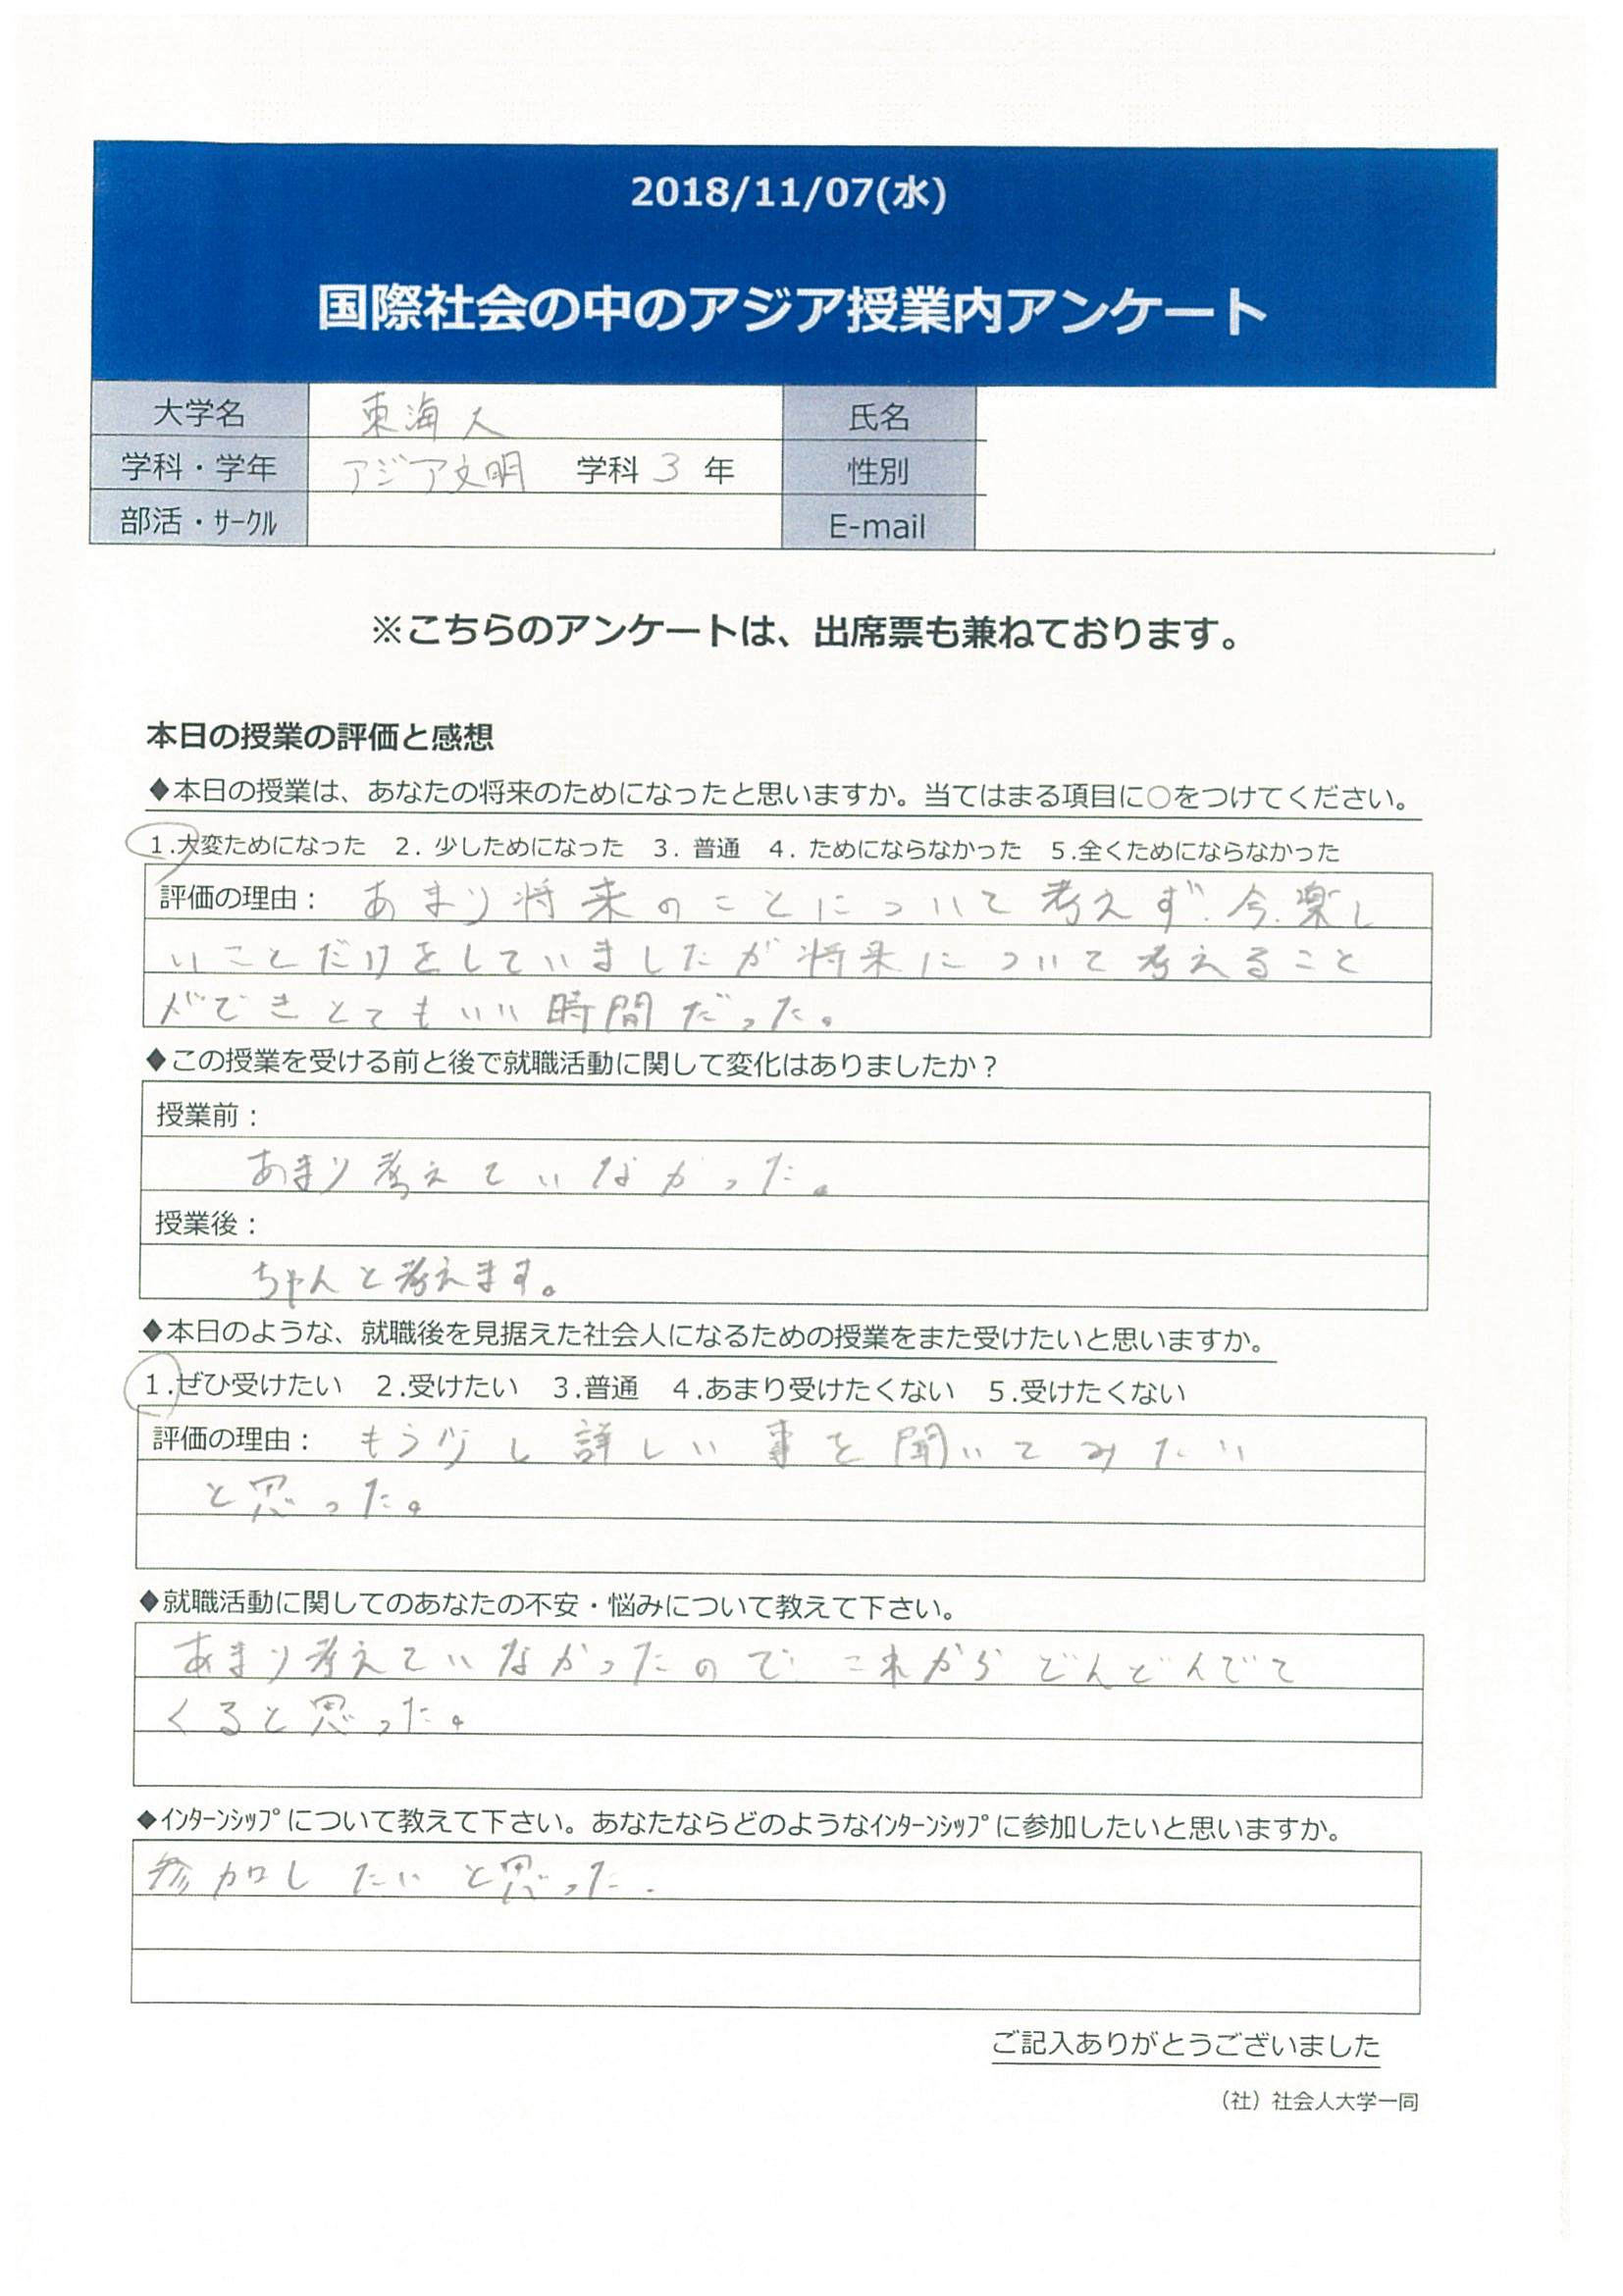 2018/11/07(水)
国際社会の中のアジア授業内アンケート
大学名 東海大 氏名
学科・学年 アジア文明 学科 3 年 性別
部活・ｻｰｸﾙ E-mail
※こちらのアンケートは、出席票も兼ねております。
本日の授業の評価と感想
◆本日の授業は、あなたの将来のためになったと思いますか。当てはまる項目に○をつけてください。
1.大変ためになった 2. 少しためになった 3. 普通 4. ためにならなかった 5.全くためにならなかった
評価の理由： あまり将来のことについて考えず、今、楽し
いことだけをしていましたが将来について考えること
ができとてもいい時間だった。
◆この授業を受ける前と後で就職活動に関して変化はありましたか？
授業前：
あまり考えていなかった。
授業後：
ちゃんと考えます。
◆本日のような、就職後を見据えた社会人になるための授業をまた受けたいと思いますか。
1.ぜひ受けたい 2.受けたい 3.普通 4.あまり受けたくない 5.受けたくない
評価の理由： もう少し詳しい事を聞いてみたい
と思った。
◆就職活動に関してのあなたの不安・悩みについて教えて下さい。
あまり考えていなかったので これからどんどんでて
くると思った。
◆ｲﾝﾀｰﾝｼｯﾌﾟについて教えて下さい。あなたならどのようなｲﾝﾀｰﾝｼｯﾌﾟに参加したいと思いますか。
参加したいと思った.
ご記入ありがとうございました
（社）社会人大学一同